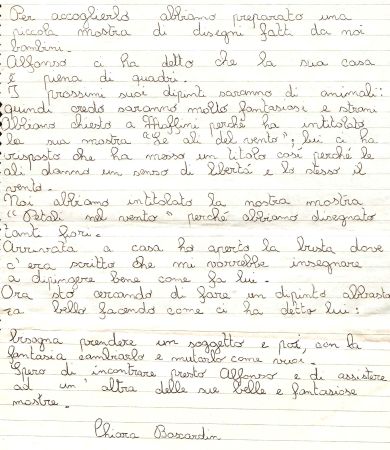 Per accoglierlo abbiamo preparato una
piccola mostra di disegni fatti da noi
bambini.
Alfonso ci ha detto che la sua casa
è piena di quadri.
I prossimi suoi dipinti saranno di animali:
quindi credo saranno molto fantasiosi e strani
Abbiamo chiesto a Maffini perché ha intitolato
la sua mostra "Le ali del vento"; lui ci ha
risposto che ha messo un titolo così perché le
ali danno un senso di libertà e lo stesso il
vento.
Noi abbiamo intitolato la nostra mostra
"Petali nel vento" perché abbiamo disegnato
tanti fiori.
Arrivata a casa ho aperto la busta dove
c'era scritto che mi vorrebbe insegnare
a dipingere bene come fa lui.
Ora sto cercando di fare un dipinto abbasta
za bello facendo come ci ha detto lui:
bisogna prendere un soggetto e poi, con la
fantasia cambiarlo e mutarlo come vuoi.
Spero di incontrare presto Alfonso e di assistere
ad un' altra delle sue belle e fantasiose
mostre.
Chiara Boscardin